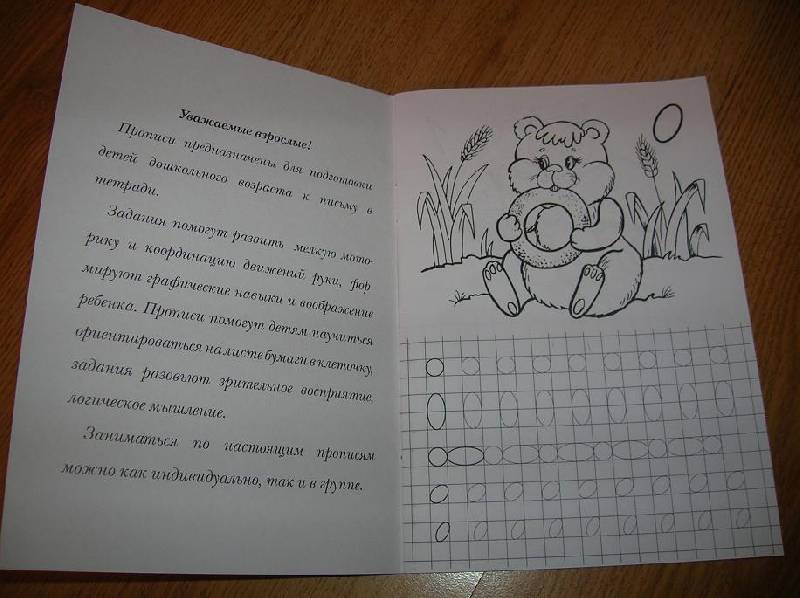 Уважаемые взрослые!
Прописи предназначены для подготовки
детей дошкольного возраста к письму в
тетради.
Задания помогут развить мелкую мото-
рику и координацию движений руки, фор
мируют графические навыки и воображение
ребенка. Прописи помогут детям научиться
ориентироваться на листе бумаги в клеточку,
задания разовьют зрительное восприятие,
логическое мышление.
Заниматься по настоящим прописям
можно как индивидуально, так и в группе.